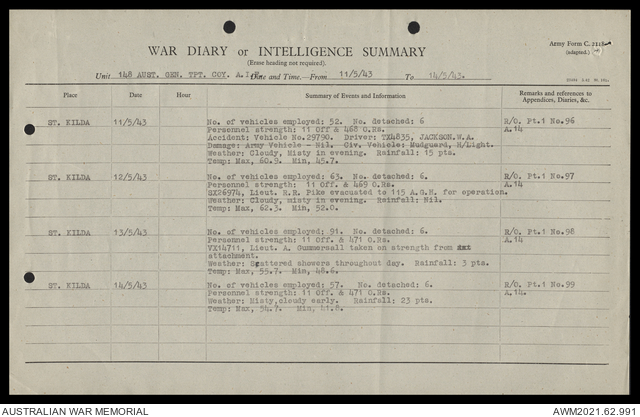 Army Form C. 2118.
(adapted.)
WAR DIARY or INTELLIGENCE SUMMARY
(Erase heading not required).
Unit 148 AUST. GEN. TPT. COY. A.I.F. Date and Time.—From 11/5/43 To 14/5/43.
Place Date Hour Summary of Events and Information Remarks and references to Appendices, Diaries, &c.
ST. KILDA 11/5/43 No. of vehicles employed: 52. No. detached: 6 R/O. Pt.1 No.96
Personnel strength: 11 Off & 468 O.Rs. A.14
Accident: Vehicle No.29790. Driver: TX4835, JACKSON.W.A.
Damage: Army Vehicle - Nil. Civ. Vehicle: Mudguard, H/Light.
Weather: Cloudy, Misty in evening. Rainfall: 15 pts.
Temp: Max, 60.9. Min, 45.7.
ST. KILDA 12/5/43 No. of vehicles employed: 63. No. detached: 6 R/O. Pt.1 No.97
Personnel strength: 11 Off & 469 O.Rs. A.14
SX26974, Lieut. R.R. Pike evacuated to 115 A.G.H. for operation.
Weather: Cloudy, misty in evening. Rainfall: Nil.
Temp: Max, 62.3. Min, 52.0.
ST. KILDA 13/5/43 No. of vehicles employed: 91. No detached: 6. R/O. Pt.1 No.98
Personnel strength: 11 Off. & 471 O.Rs. A.14
VX14711, Lieut. A. Gummersall taken on strength from
attachment.
Weather: Scattered showers throughout day. Rainfall: 3 pts.
Temp: Max, 55.7. Min, 48.6.
ST. KILDA 14/5/43 No. of vehicles employed: 57. No. detached: 6. R/O. Pt.1 No.99
Personnel strength: 11 Off. & 471 O.Rs. A.14.
Weather: Misty,cloudy early. Rainfall: 23 pts.
Temp: Max, 54.7. Min, 41.8.
AUSTRALIAN WAR MEMORIAL AWM2021.62.991